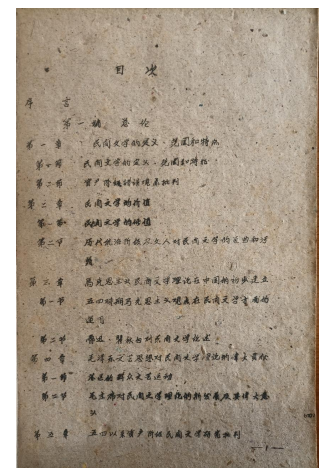 目 次
序 言
第一编 总论
第一章 民间文学的定义、范围和特点
第一节 民间文学的定义、范围和特征
第二节 资产阶级错误观点批判
第二章 民间文学的价值
第一节 民间文学的价值
第二节 历代统治阶级及文人对民间文学的
第三章 马克思主义民间文学理论在中国的初步建立
第一节 五四时期马克思主义观点在民间文学方面的
运用
第二节 鲁迅、瞿秋白的民间文学论述
第四章 毛泽东文艺思想对民间文学理论的伟大贡献
第一节 苏区的群众文艺运动
第二节 毛主席对民间文学理论的新发展及其伟大意
义
第五章 五四以来资产阶级民间文学研究批判
—1—